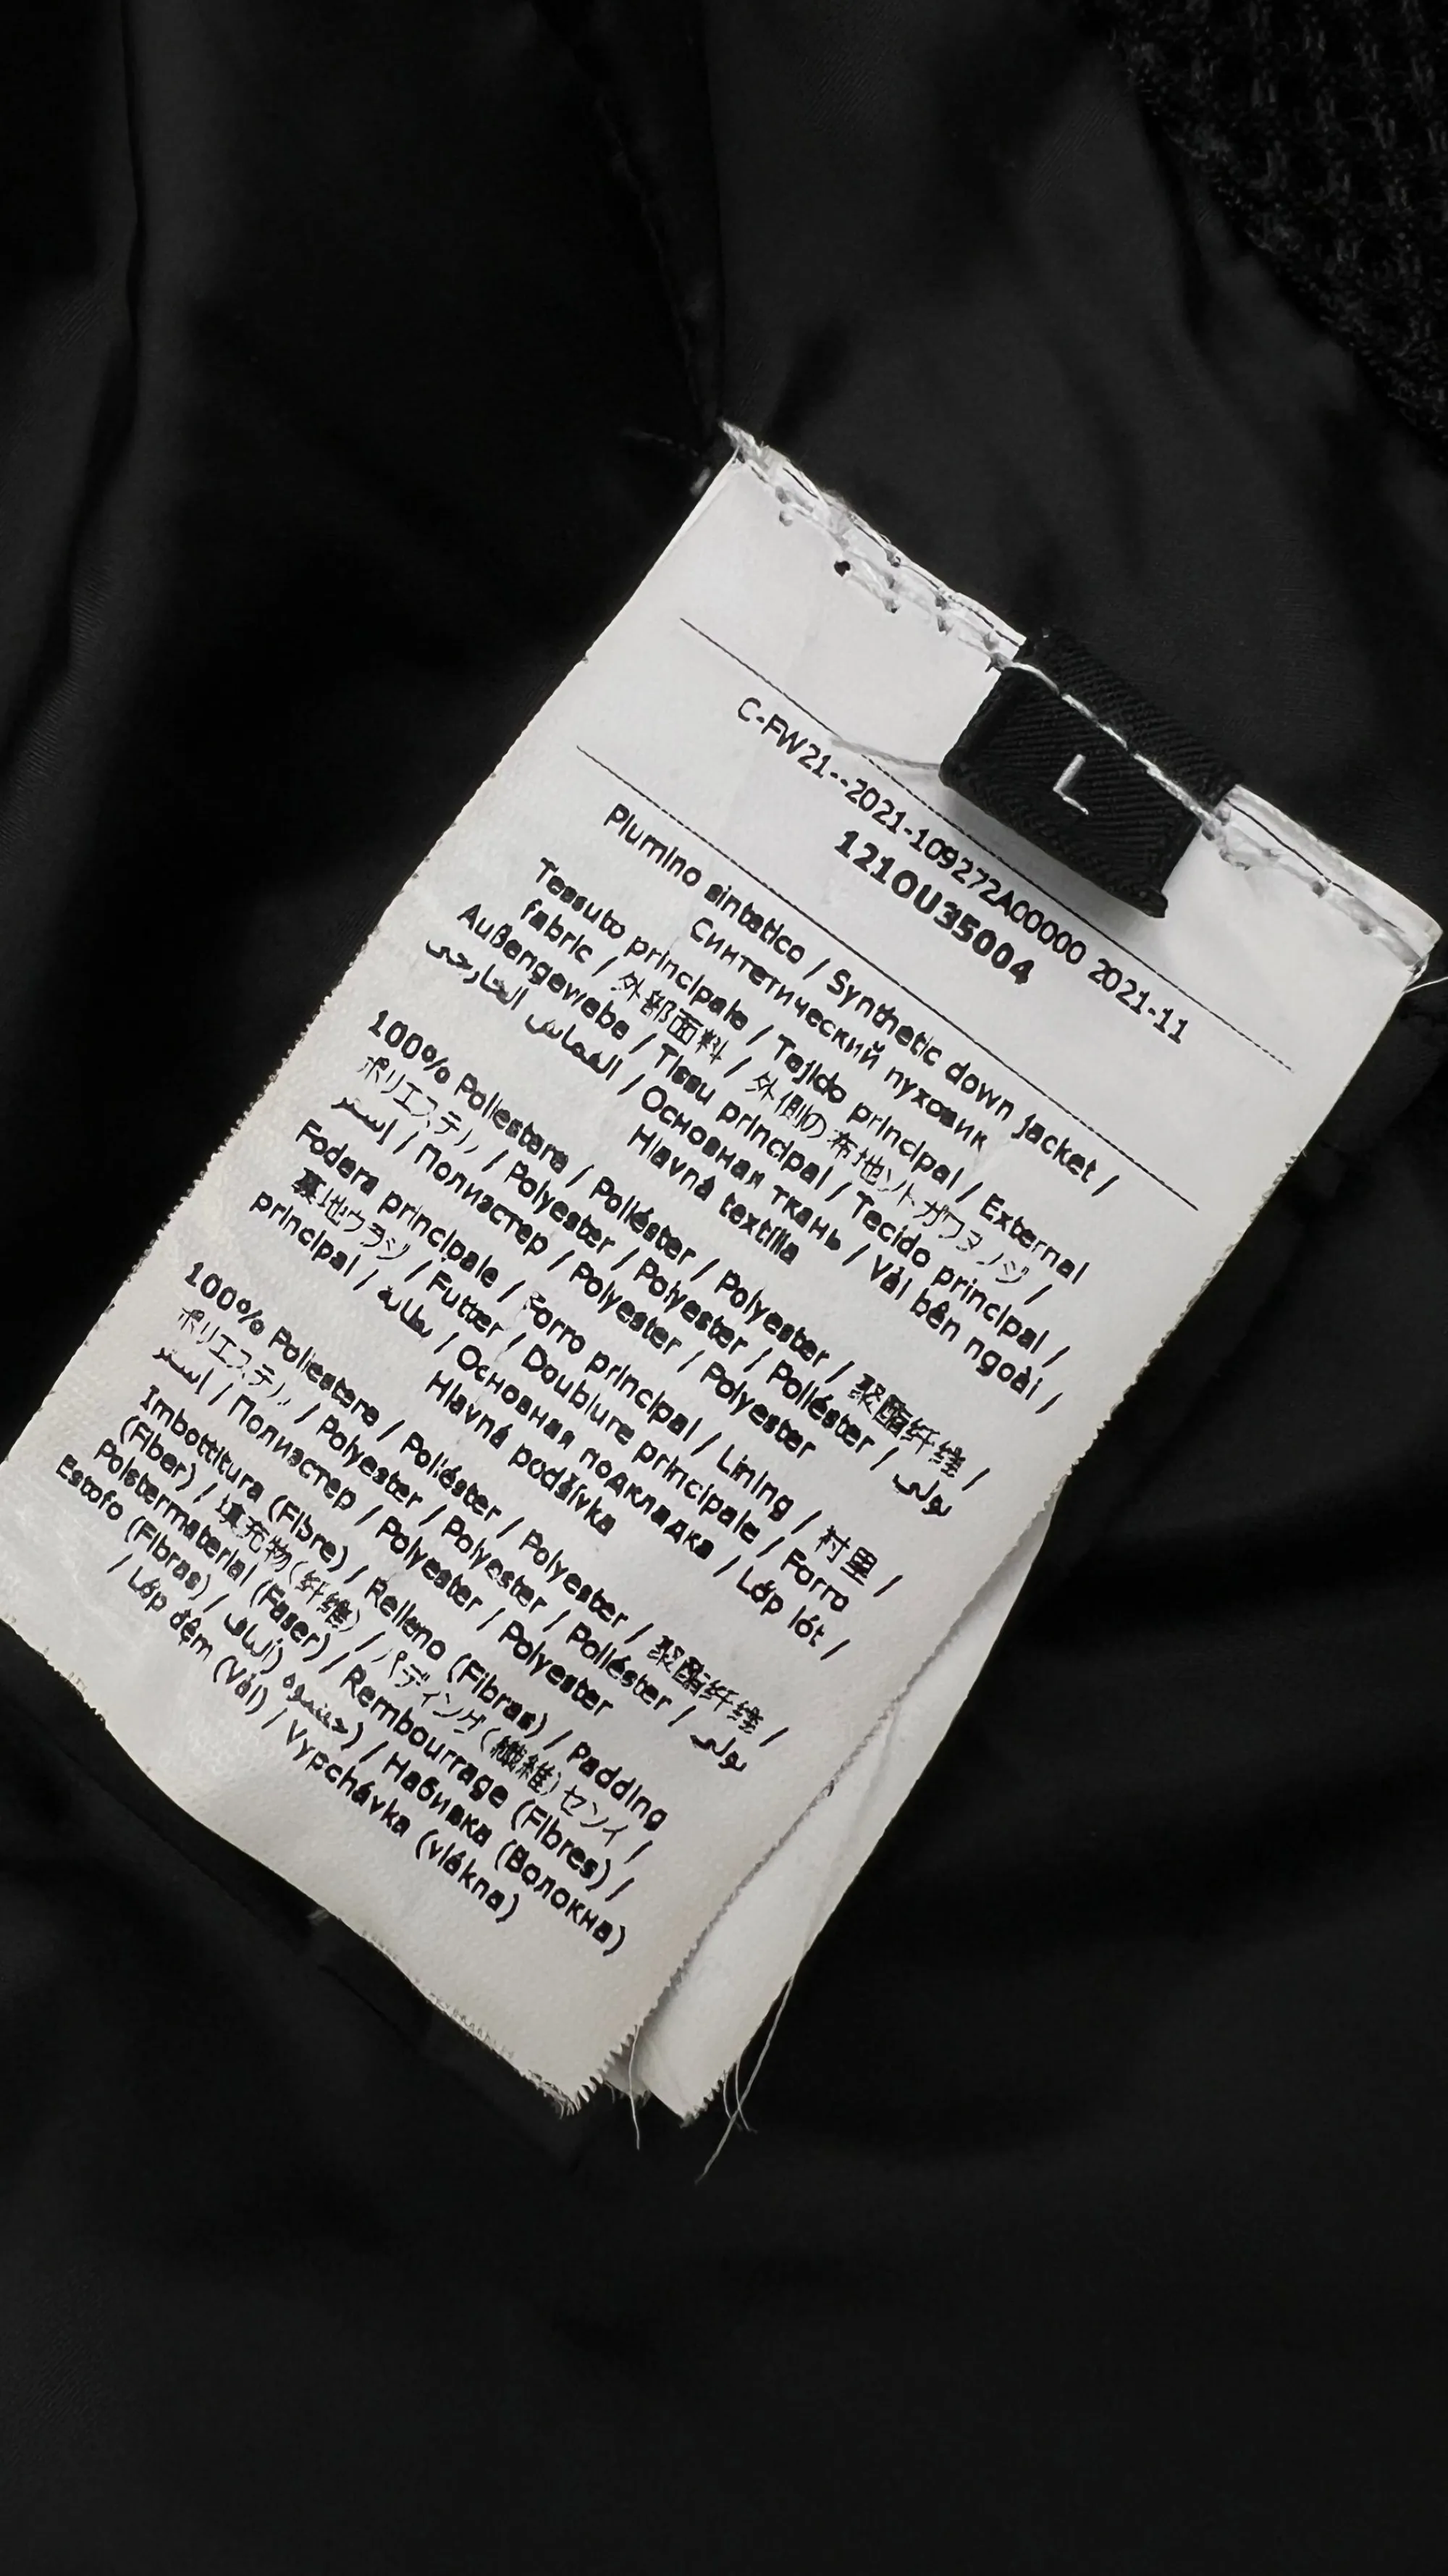 L
C-FW21--2021-109272A00000 2021-11
1210U35004
Piumino sintetico / Synthetic down jacket /
Синтетический пуховик
Tessuto principale / Tejido principal / External
fabric / 外部面料 / 外側の布地ソトガワヌノジ /
Außengewebe / Tissu principal / Tecido principal /
القماش الخارجي / Основная ткань / Vải bên ngoài /
Hlavná textília
100% Poliestere / Poliéster / Polyester / 聚酯纤维 /
ポリエステル / Polyester / Polyester / Poliéster / بولي
إستر / Полиэстер / Polyester / Polyester
Fodera principale / Forro principal / Lining / 衬里 /
裏地ウラジ / Futter / Doublure principale / Forro
principal / بطانة / Основная подкладка / Lớp lót /
Hlavná podšívka
100% Poliestere / Poliéster / Polyester / 聚酯纤维 /
ポリエステル / Polyester / Polyester / Poliéster / بولي
إستر / Полиэстер / Polyester / Polyester
Imbottitura (Fibre) / Relleno (Fibras) / Padding
(Fiber) / 填充物(纤维) / パディング(繊維)センイ /
Polstermaterial (Faser) / Rembourrage (Fibres) /
Estofo (Fibras) / حشوه (ألياف) / Набивка (Волокна)
/ Lớp đệm (Vải) / Vypchávka (vlákna)